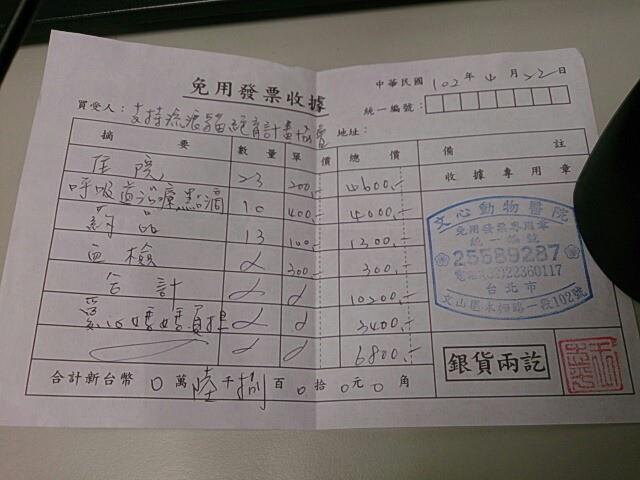 免用發票收據
中華民國 102 年 4 月 22 日
統一編號：
買受人： 支持流浪貓絕育計畫協會 地址：
摘要 數量 單價 總價 備註
收據專用章
住院 23 200.- 4600.-
呼吸道治療點滴 10 400.- 4000.-
藥品 13 100.- 1300.-
血檢 300.- 300.-
合計 10200.-
媽媽負擔 3400.-
6800.-
文心動物醫院
免用發票專用章
統一編號
25589287
電話(02)22360117
台北市
文山區木柵路一段102號
銀貨兩訖
合計新台幣 0 萬 陸 千 捌 百 0 拾 0 元 0 角